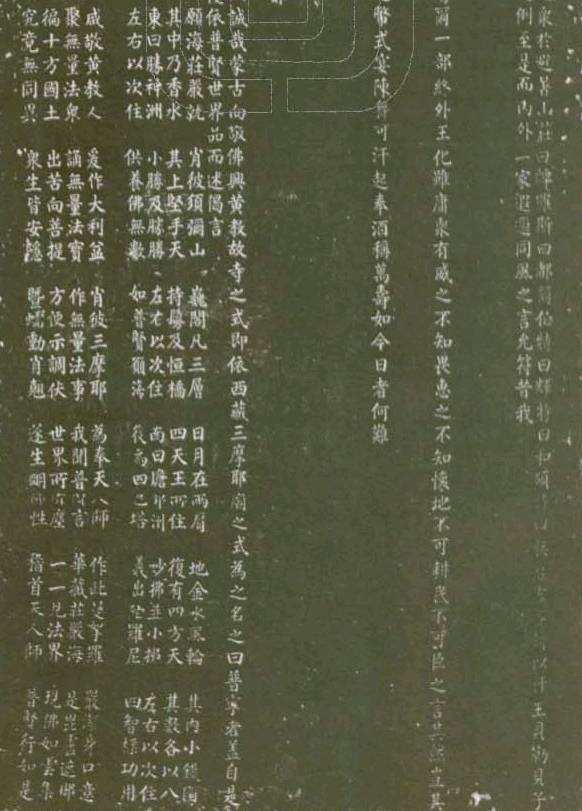 衆於避暑山莊曰綽羅斯曰都爾伯特曰輝特曰和碩
例至是而內外一家遐邇同風之言允符昔我
爾一部終外王化雖庸衆有威之不知畏惠之不知懷地不可耕民不可臣之言其然豈其
幣式宴陳舞可汗起奉酒稱萬壽如今日者何難
誠哉蒙古向敬佛興黃教故寺之式即依西藏三摩耶廟之式為之名之曰普寧者蓋自是
依普賢世界品而述偈言
願海莊嚴就 肖彼須彌山 巍閣凡三層 日月在兩肩 地金水風輪 其內小鐵圍
其中乃香水 其上堅手天 持鬘及恒憍 四天王所住 復有四方天 其數各以八
東曰勝神洲 小勝及勝勝 左右以次住 南曰贍部洲 妙拂並小拂 左右以次住
左右以次住 供養佛無數 如普賢願海 後為四色塔 義出陀羅尼 四智標功用
咸敬黃教人 爰作大利益 肖彼三摩耶 為奉天人師 作此曼拏羅 嚴淨身口意
聚無量法衆 誦無量法寶 作無量法事 我聞普賢言 華藏莊嚴海 是毘盧遮那
徧十方國土 出苦向菩提 方便示調伏 世界所有塵 一一見法界 現佛如雲集
究竟無同異 衆生皆安隱 暨蠕動肖翹 遂生明佛性 稽首天人師 普賢行如是